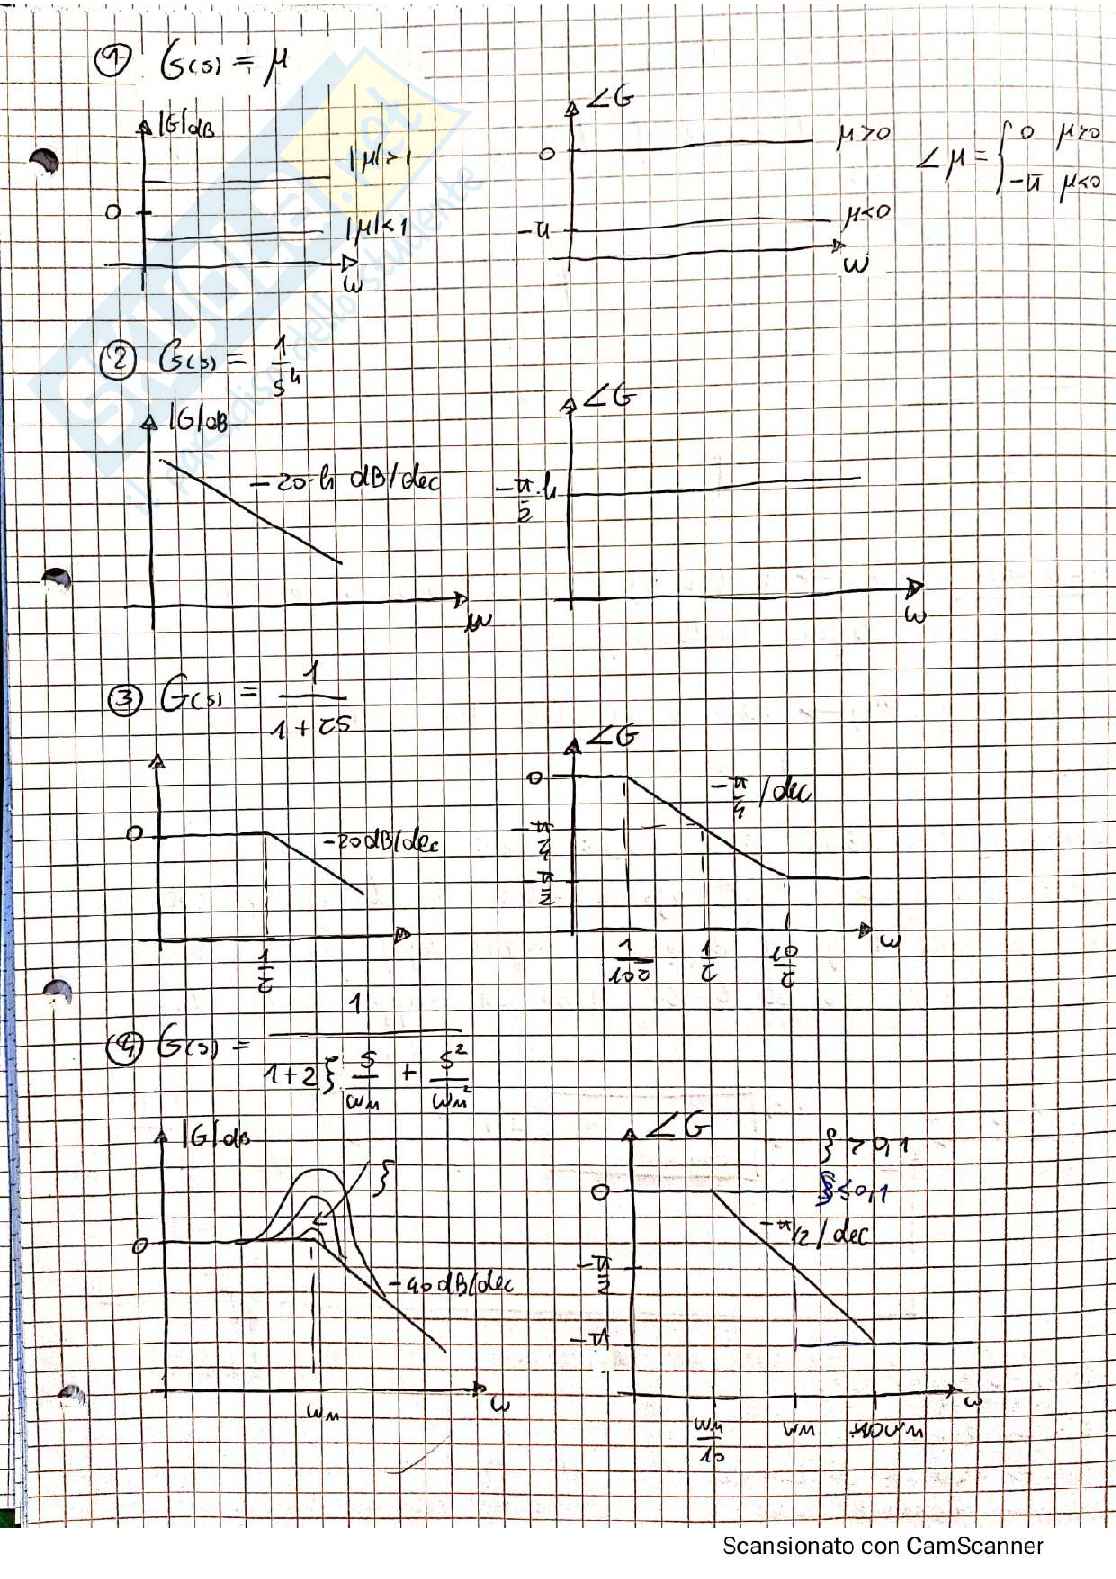 ① G(s) = μ
|G|dB
|μ|>1
0
|μ|<1
ω
∠G
0
μ>0
-π
μ<0
ω
∠μ = { 0 μ>0
-π μ<0
② G(s) = 1/s^h
|G|dB
-20·h dB/dec
ω
∠G
-π/2·h
ω
③ G(s) = 1/(1+τs)
0
-20dB/dec
1/τ
∠G
0
-π/4 /dec
-π/4
-π/2
1/10τ
1/τ
10/τ
ω
④ G(s) = 1/(1+2ξ s/ωn + s²/ωn²)
|G|dB
ξ
0
-40dB/dec
ωn
ω
∠G
ξ >0,1
ξ ≤0,1
0
-π/2/dec
-π/2
-π
ωn/10
ωn
10ωn
ω
Scansionato con CamScanner